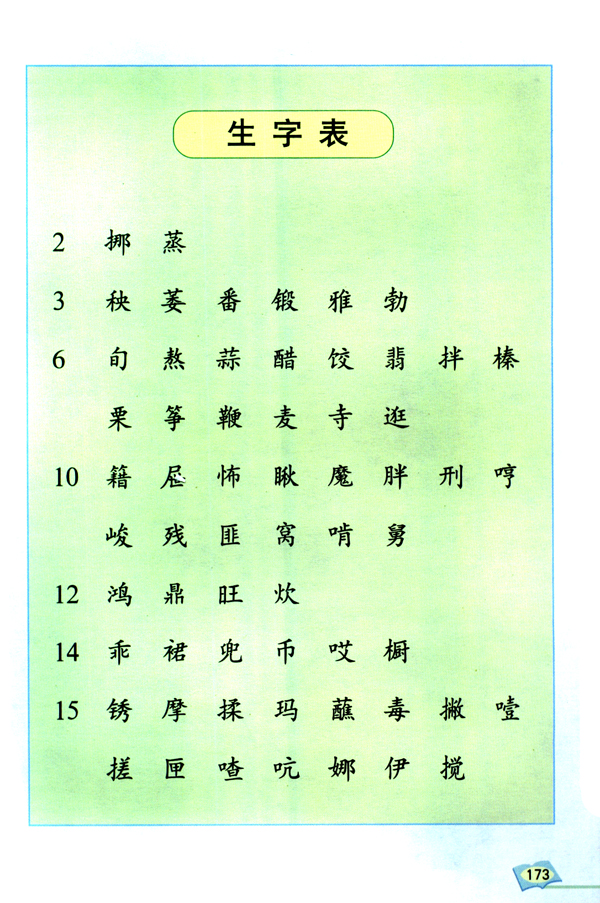 生字表
2 挪 蒸
3 秧 萎 番 锻 雅 勃
6 旬 熬 蒜 醋 饺 翡 拌 榛
栗 筝 鞭 麦 寺 逛
10 籍 屉 怖 瞅 魔 胖 刑 哼
峻 残 匪 窝 啃 舅
12 鸿 鼎 旺 炊
14 乖 裙 兜 币 哎 橱
15 锈 摩 揉 玛 蘸 毒 撇 噎
搓 匣 喳 吭 娜 伊 搅
173